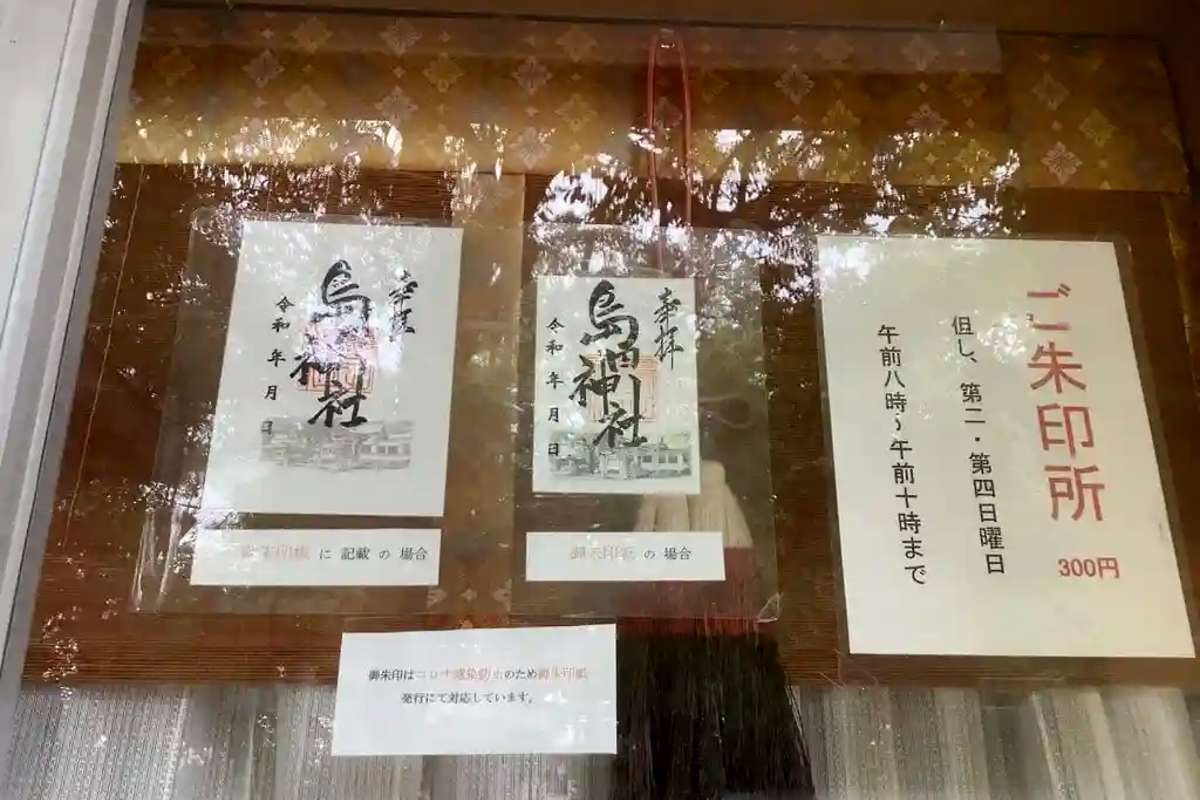 ご朱印所
300円
但し、第二・第四日曜日
午前八時~午前十時まで
奉拝
神社
令和 年 月 日
御朱印紙 の 場合
奉拝
神社
令和 年 月 日
御朱印帳 に 記載 の 場合
御朱印はコロナ感染防止のため御朱印紙
発行にて対応しています。